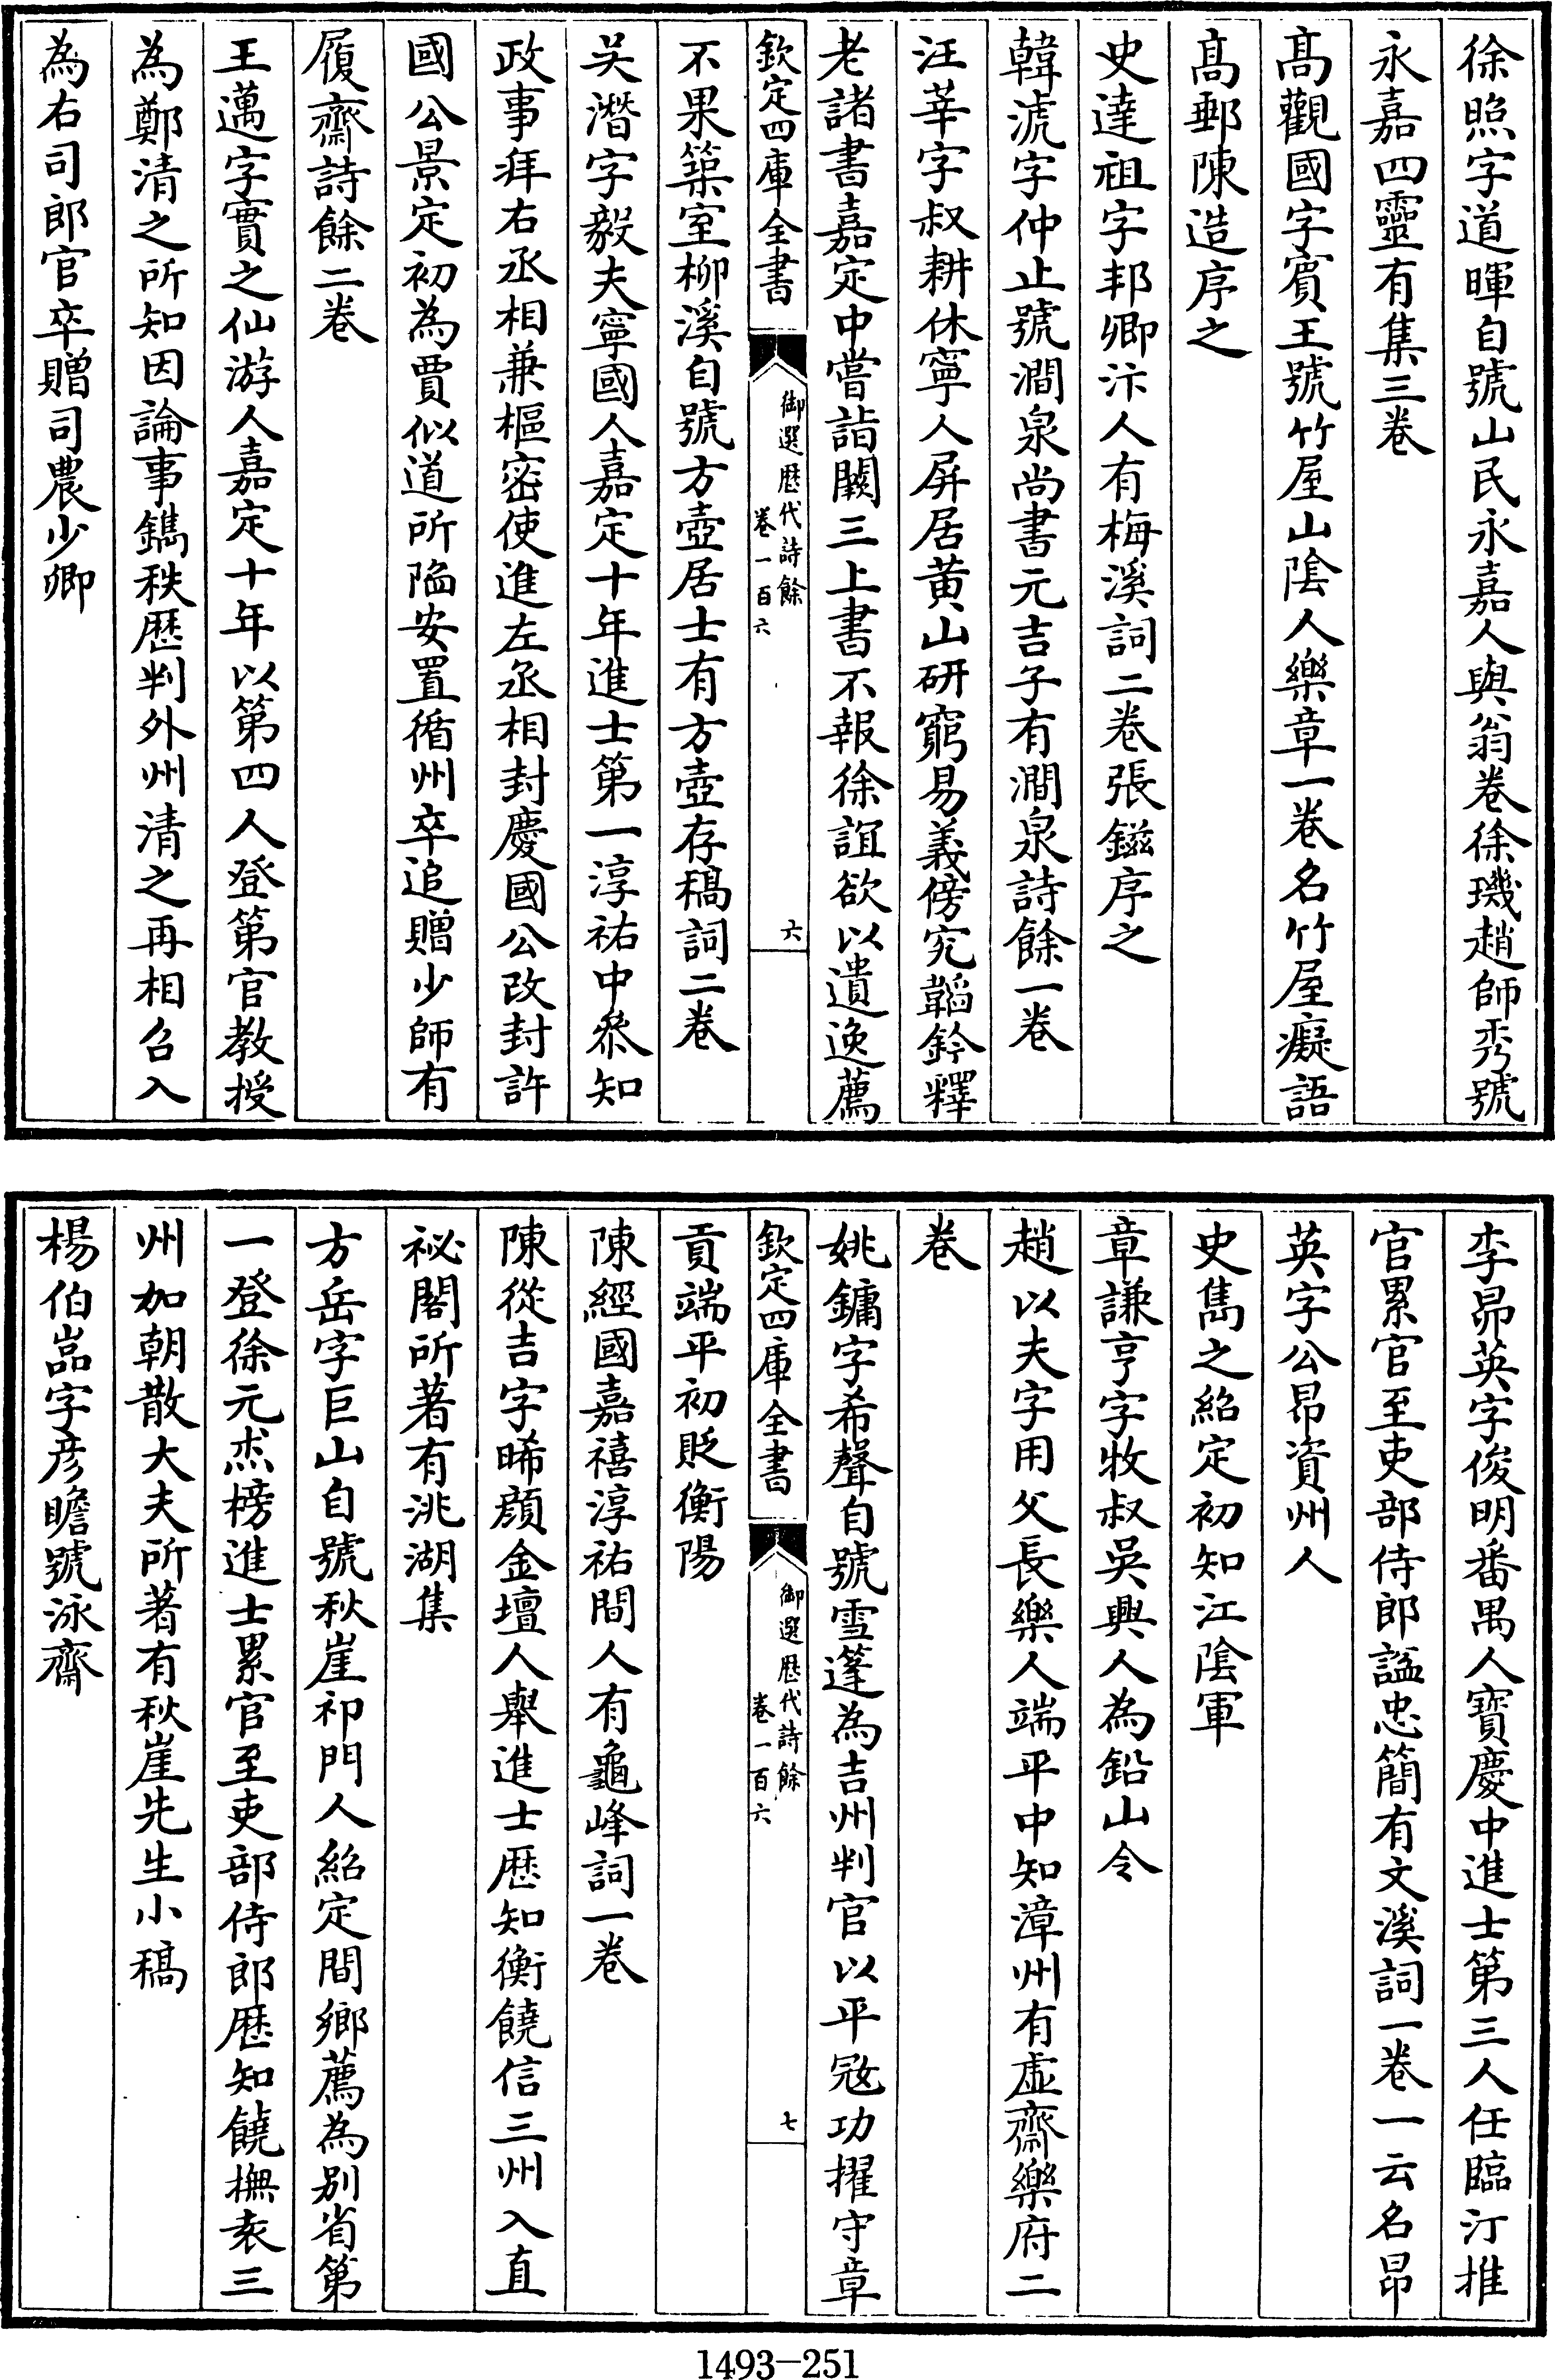 徐照字道暉自號山民永嘉人與翁卷徐璣趙師秀號
永嘉四靈有集三卷
髙觀國字賔王號竹屋山隂人樂章一卷名竹屋癡語
髙郵陳造序之
史達祖字邦卿汴人有梅溪詞二卷張鎡序之
韓淲字仲止號澗泉尚書元吉子有澗泉詩餘一卷
汪莘字叔耕休寧人屏居黄山研窮易義傍究韜鈐釋
老諸書嘉定中嘗詣闕三上書不報徐誼欲以遺逸薦
欽定四庫全書
御選歴代詩餘
卷一百六
六
不果築室柳溪自號方壺居士有方壺存稿詞二卷
吴潛字毅夫寧國人嘉定十年進士第一淳祐中叅知
政事拜右丞相兼樞密使進左丞相封慶國公改封許
國公景定初為賈似道所陥安置循州卒追贈少師有
履齋詩餘二卷
王邁字實之仙游人嘉定十年以第四人登第官教授
為鄭清之所知因論事鐫秩歴判外州清之再相召入
為右司郎官卒贈司農少卿
李昴英字俊明番禺人寳慶中進士第三人任臨汀推
官累官至吏部侍郎諡忠簡有文溪詞一卷一云名昂
英字公昂資州人
史雋之紹定初知江隂軍
章謙亨字牧叔吳興人為鉛山令
趙以夫字用父長樂人端平中知漳州有虚齋樂府二
卷
姚鏞字希聲自號雪蓬為吉州判官以平冦功擢守章
欽定四庫全書
御選歴代詩餘
卷一百六
七
貢端平初貶衡陽
陳經國嘉禧淳祐間人有龜峰詞一卷
陳從吉字晞顔金壇人舉進士歴知衡饒信三州入直
祕閣所著有洮湖集
方岳字巨山自號秋崖祁門人紹定間鄉薦為别省第
一登徐元杰榜進士累官至吏部侍郎歴知饒撫袁三
州加朝散大夫所著有秋崖先生小稿
楊伯嵒字彦瞻號泳齋
1493—251